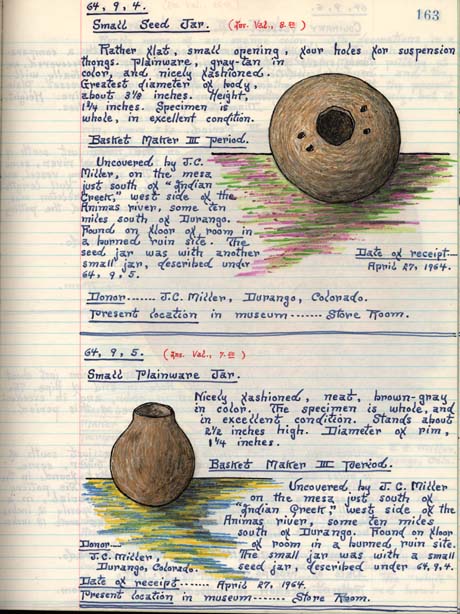 163
64, 9, 4.
Small Seed Jar. (Ins. Val., 8.00)
Rather flat, small opening, four holes for suspension
thongs. Plainware, gray-tan in
color, and nicely fashioned.
Greatest diameter of body,
about 3 1/8 inches. Height,
1 3/4 inches. Specimen is
whole, in excellent condition.
Basket Maker III Period.
Uncovered by J.C.
Miller, on the mesa
just south of "Indian
Creek," west side of the
Animas river, some ten
miles south of Durango.
Found on floor of room in
a burned ruin site. The
seed jar was with another
small jar, described under
64, 9, 5.
Date of receipt---
April 27, 1964.
Donor....... J.C. Miller, Durango, Colorado.
Present location in museum....... Store Room.
64, 9, 5. (Ins. Val., 7.00)
Small Plainware Jar.
Nicely fashioned, neat, brown-gray
in color. The specimen is whole, and
in excellent condition. Stands about
2 1/2 inches high. Diameter of rim,
1 1/4 inches.
Basket Maker III Period.
Uncovered by J.C. Miller
on the mesa just south of
"Indian Creek," west side of the
Animas river, some ten miles
south of Durango. Found on floor
of room in a burned ruin site.
The small jar was with a small
seed jar, described under 64, 9, 4.
Donor---
J.C. Miller,
Durango, Colorado.
Date of receipt....... April 27, 1964.
Present location in museum....... Store Room.